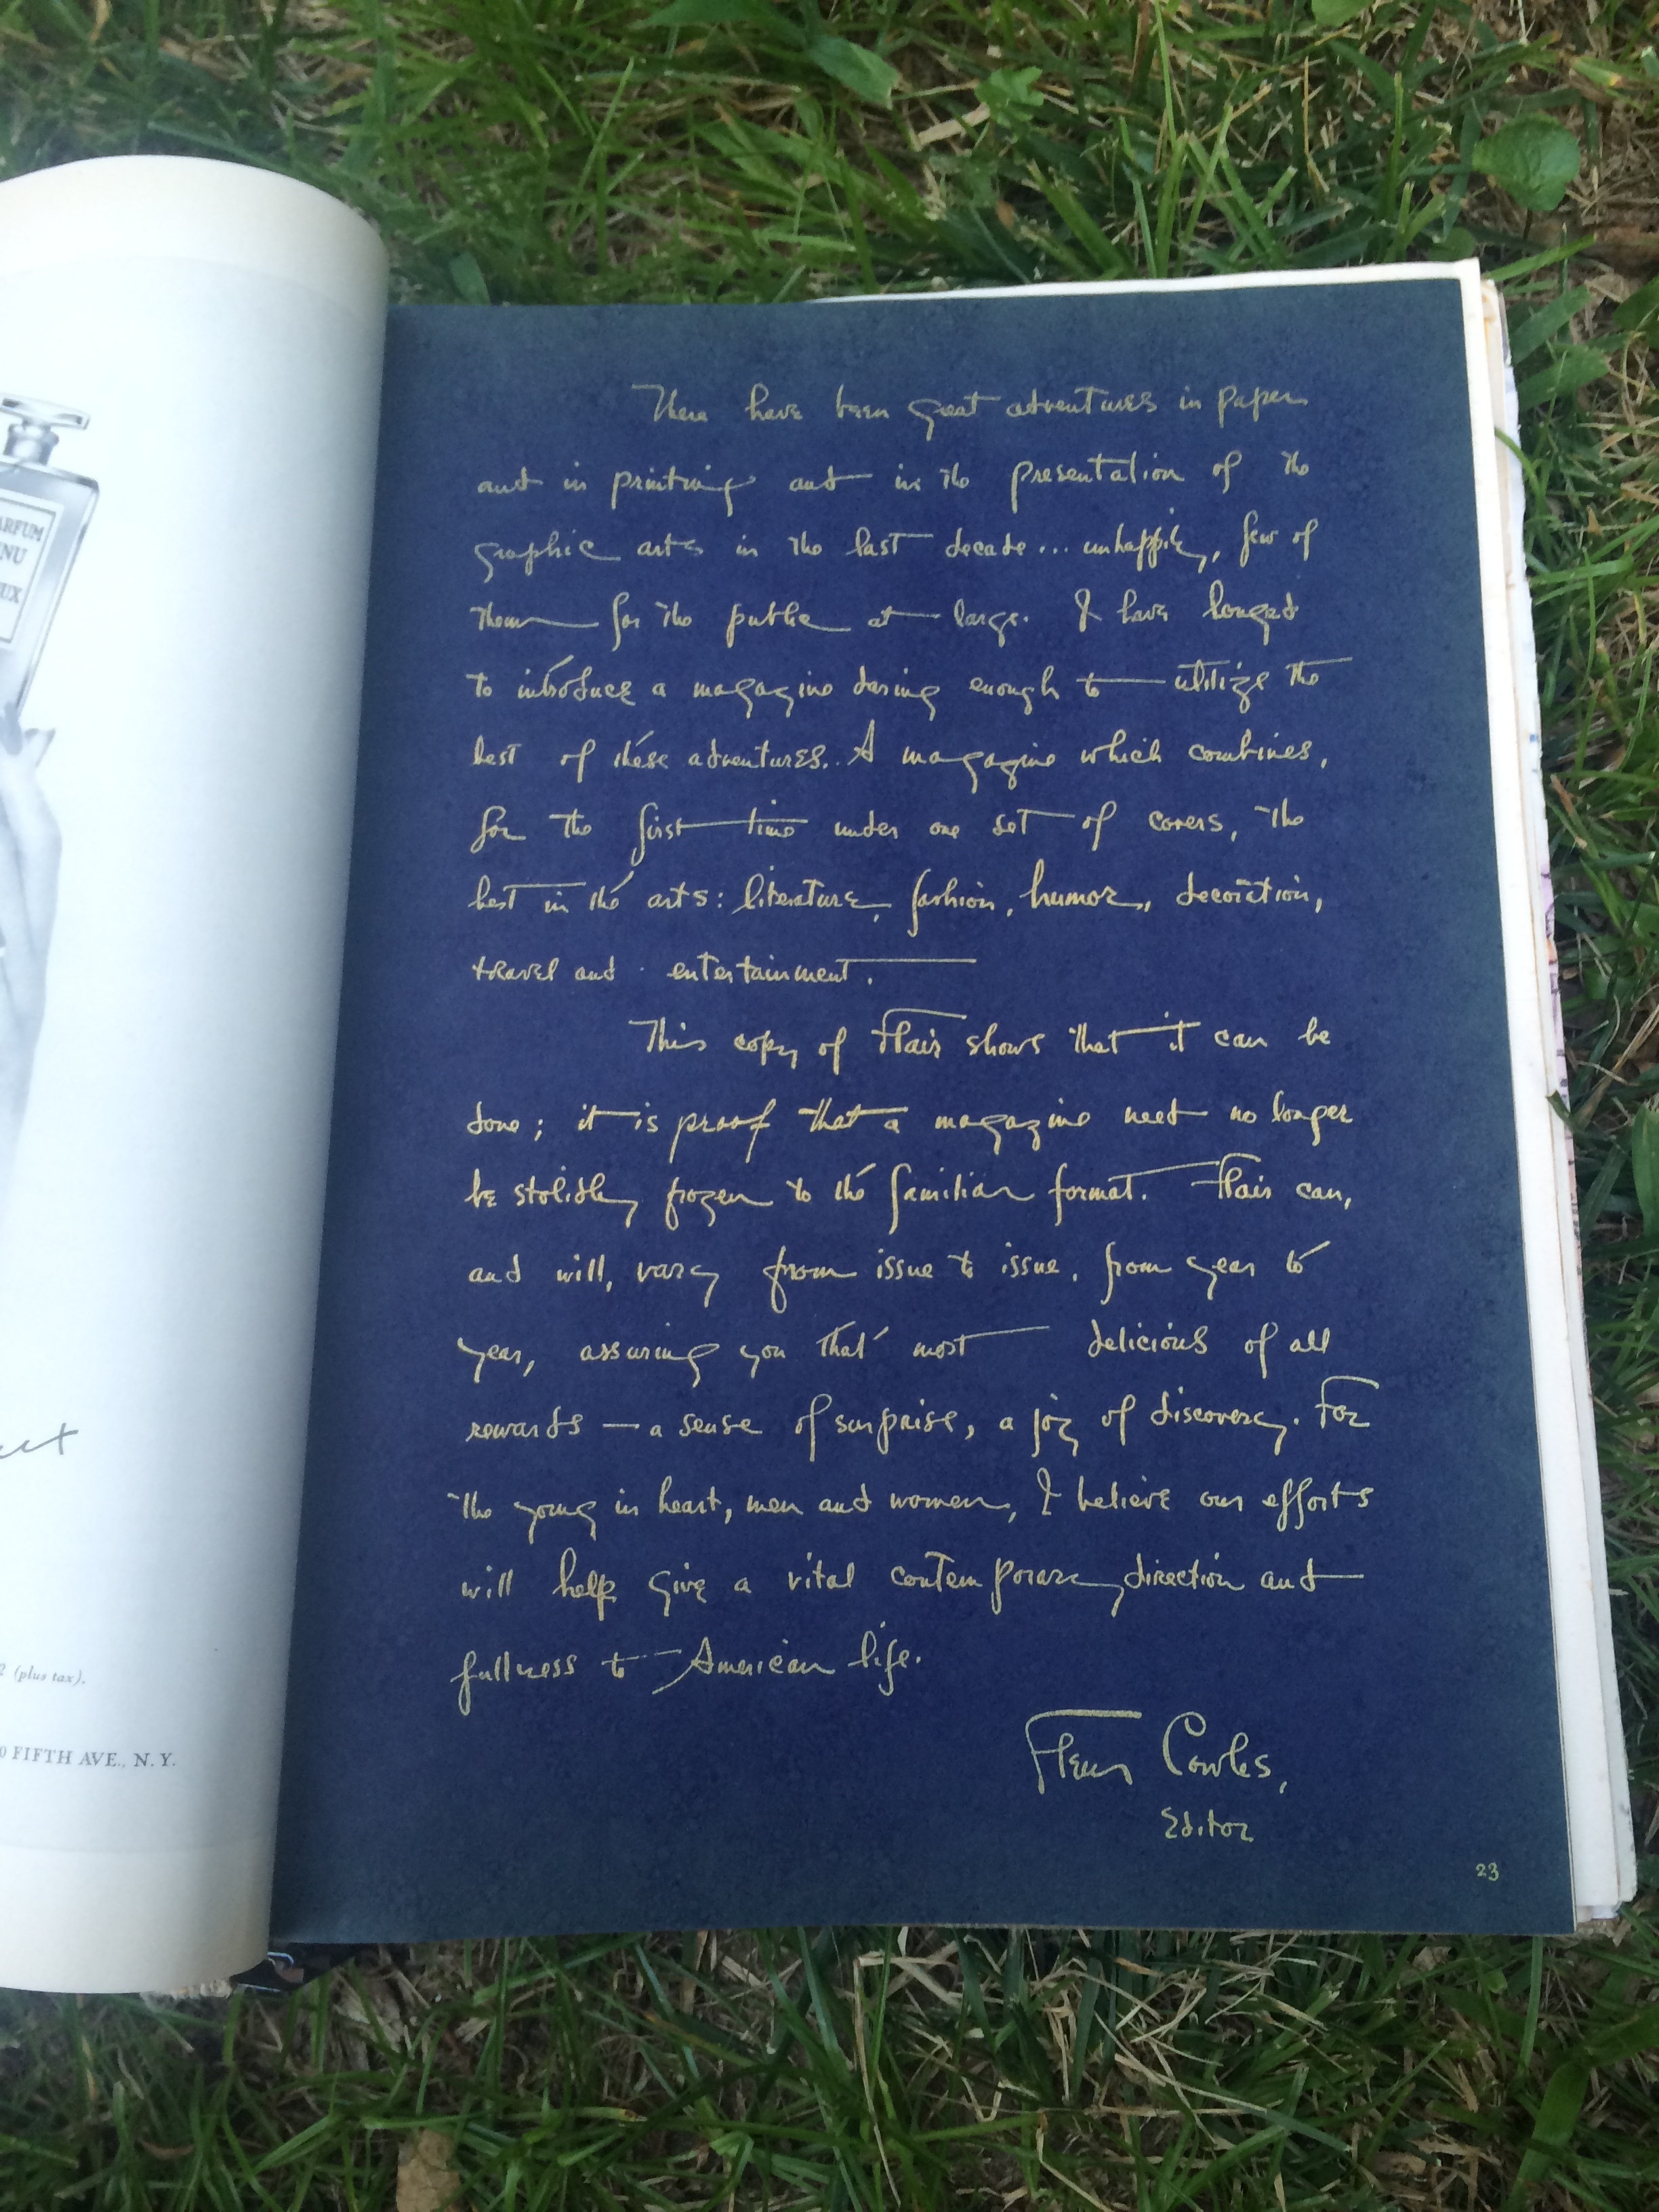 ARFUM
NU
UX
2 (plus tax).
0 FIFTH AVE., N. Y.
There have been great adventures in paper
and in printing and in the presentation of the
graphic arts in the last decade... unhappily, few of
them for the public at large. I have longed
to introduce a magazine daring enough to utilize the
best of these adventures. A magazine which combines,
for the first time under one set of covers, the
best in the arts: literature, fashion, humor, decoration,
travel and entertainment.
This copy of Flair shows that it can be
done; it is proof that a magazine need no longer
be stolidly frozen to the familiar format. Flair can,
and will, vary from issue to issue, from year to
year, assuring you that most delicious of all
rewards — a sense of surprise, a joy of discovery. For
the young in heart, men and women, I believe our efforts
will help give a vital contemporary direction and
fullness to American life.
Fleur Cowles,
Editor
23